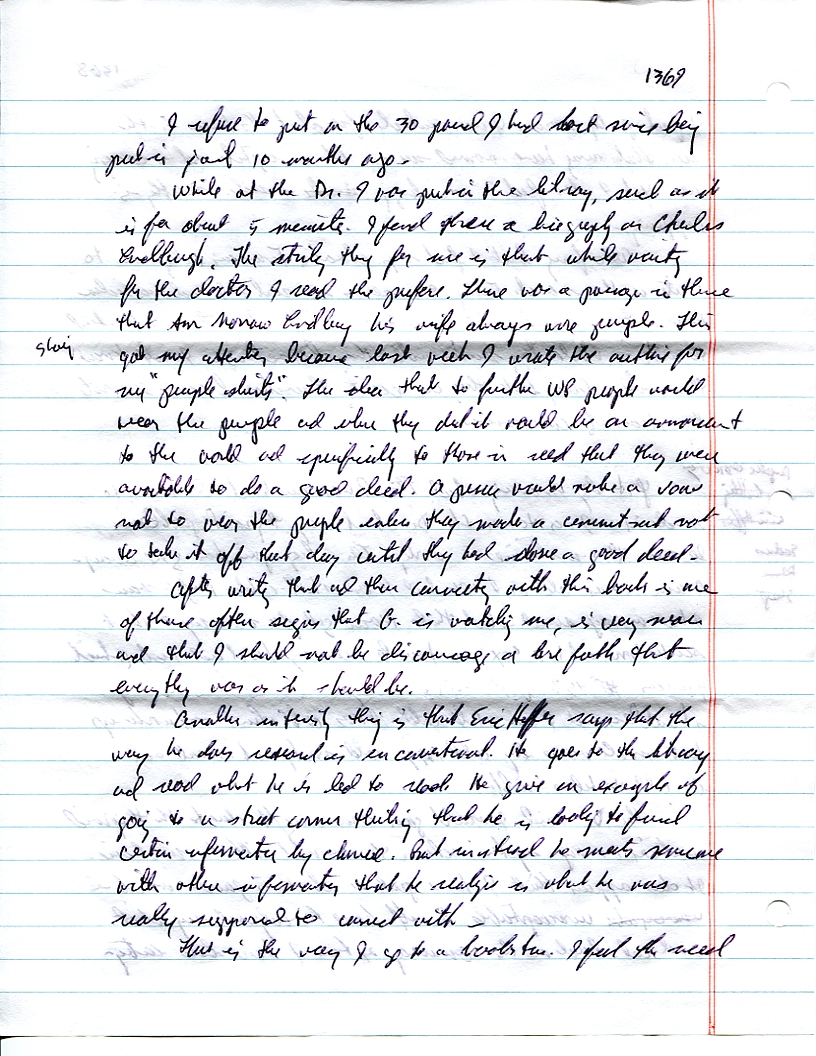 1369
I refuse to put on the 30 pound I had lost since being
put in jail 10 months ago.
While at the Dr. I was put in the library, such as it
is for about 5 minute. I found there a biography on Charles
Lindbergh. The striking thing for me is that while waiting
for the doctor I read the preface. There was a passage in there
that Ann Morrow Lindbergh his wife always wore purple. This
story
got my attention because last week I wrote the outline for
my "purple shirts". The idea that to further WP people would
wear the purple and when they did it would be an announcement
to the world and specifically to those in need that they were
available to do a good deed. A person would make a vow
not to wear the purple unless they made a commitment not
to take it off that day until they had done a good deed.
After writing that and then connecting with this book is one
of those often signs that G. is watching me, is very near
and that I should not be discourage & have faith that
everything was as it should be.
Another interesting thing is that Eric Hoffer says that the
way he does research is inconventional. He goes to the library
and read what he is led to read. He give an example of
going to a street corner thinking that he is looking to find
certain information by chance. But instead he meets someone
with other information that he realizes is what he was
really supposed to connect with.
That is the way I go to a bookstore. I feel the need